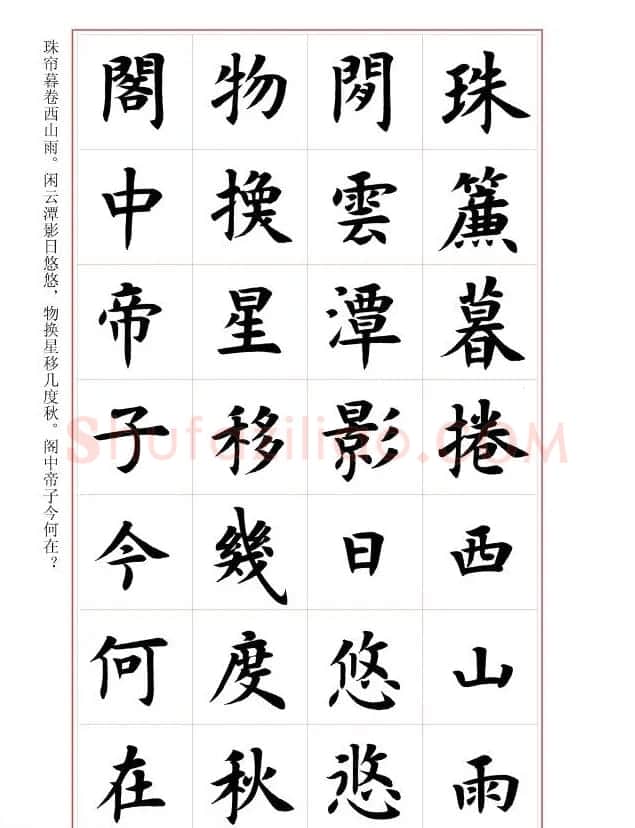 珠簾暮捲西山雨
閒雲潭影日悠悠
物換星移幾度秋
閣中帝子今何在
珠帘暮卷西山雨。闲云潭影日悠悠，物换星移几度秋。阁中帝子今何在？
Shufaziliao.COM